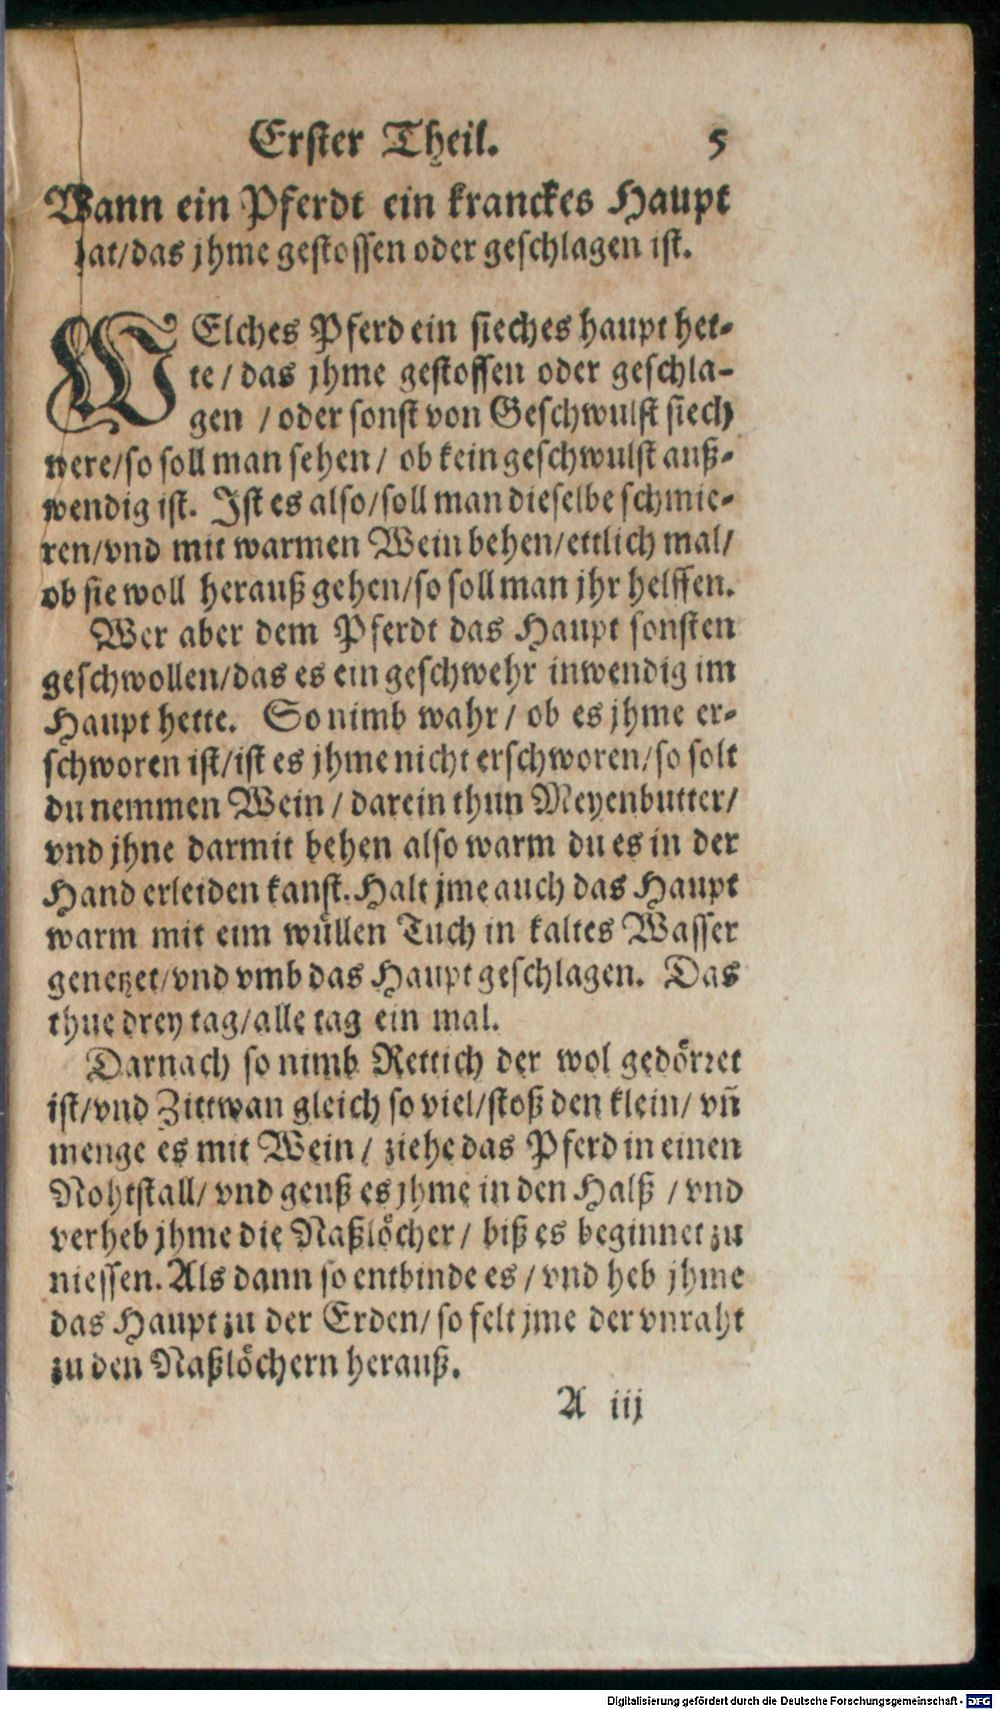 Erster Theil. 5
Wann ein Pferdt ein kranckes Haupt
hat/das jhme gestossen oder geschlagen ist.
WElches Pferd ein sieches haupt het-
te / das jhme gestossen oder geschla-
gen / oder sonst von Geschwulst siech
were/so soll man sehen / ob kein geschwulst auß-
wendig ist. Ist es also/soll man dieselbe schmie-
ren/vnd mit warmen Wein behen/ettlich mal/
ob sie woll herauß gehen/so soll man jhr helffen.
Wer aber dem Pferdt das Haupt sonsten
geschwollen/das es ein geschwehr inwendig im
Haupt hette. So nimb wahr / ob es jhme er-
schworen ist/ist es jhme nicht erschworen/so solt
du nemmen Wein / darein thun Meyenbutter/
vnd jhne darmit behen also warm du es in der
Hand erleiden kanst. Halt jme auch das Haupt
warm mit eim wüllen Tuch in kaltes Wasser
genetzet/vnd vmb das Haupt geschlagen. Das
thue drey tag/alle tag ein mal.
Darnach so nimb Rettich der wol gedörret
ist/vnd Zittwan gleich so viel/stoß den klein/ vn̄
menge es mit Wein / ziehe das Pferd in einen
Nohtstall/ vnd geuß es jhme in den Halß / vnd
verheb jhme die Naßlöcher / biß es beginnet zu
niessen. Als dann so entbinde es / vnd heb jhme
das Haupt zu der Erden/ so felt jme der vnraht
zu den Naßlöchern herauß.
A iij
Digitalisierung gefördert durch die Deutsche Forschungsgemeinschaft - DFG